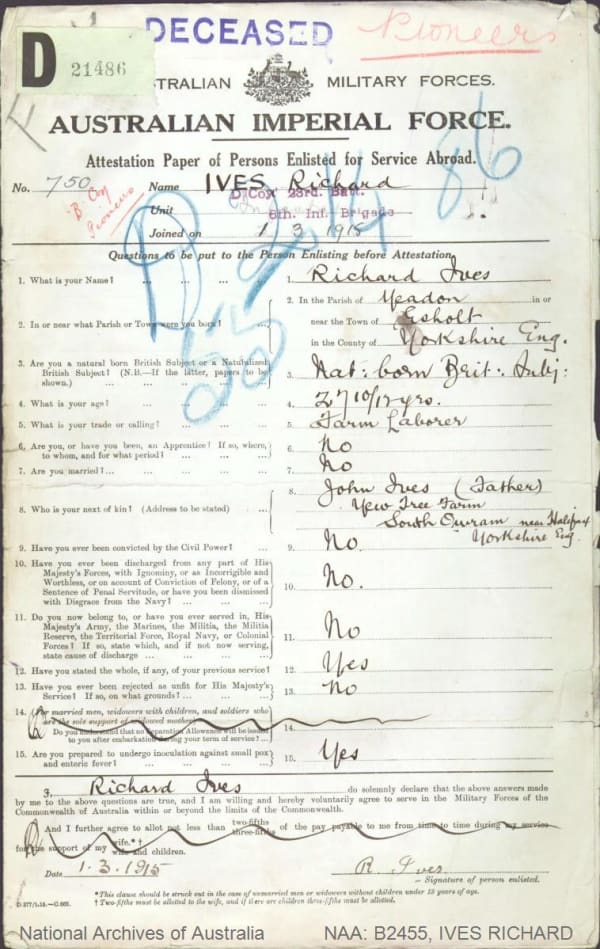 DECEASED
Pioneers
D 21486
AUSTRALIAN MILITARY FORCES.
AUSTRALIAN IMPERIAL FORCE.
Attestation Paper of Persons Enlisted for Service Abroad.
No. 750 Name IVES, Richard
B Coy Pioneers
D. Coy. 23rd. Batt.
Unit 6th. Inf. Brigade
Joined on 1 3 1915
Questions to be put to the Person Enlisting before Attestation.
1. What is your Name? ... ... ... ... 1. Richard Ives
2. In or near what Parish or Town were you born? ... 2. In the Parish of Yeadon in or
near the Town of Esholt
in the County of Yorkshire Eng.
3. Are you a natural born British Subject or a Naturalized British Subject? (N.B.—If the latter, papers to be shown.) ... ... 3. Nat: born Brit: Subj:
4. What is your age? ... ... ... ... 4. 27 10/12 yrs.
5. What is your trade or calling? ... ... ... 5. Farm Laborer
6. Are you, or have you been, an Apprentice? If so, where, to whom, and for what period? ... ... 6. No
7. Are you married? ... ... ... ... 7. No
8. Who is your next of kin? (Address to be stated) ... 8. John Ives (Father)
Yew Tree Farm
South Owram near Halifax
Yorkshire Eng.
9. Have you ever been convicted by the Civil Power? ... 9. No.
10. Have you ever been discharged from any part of His Majesty's Forces, with Ignominy, or as Incorrigible and Worthless, or on account of Conviction of Felony, or of a Sentence of Penal Servitude, or have you been dismissed with Disgrace from the Navy? ... 10. No.
11. Do you now belong to, or have you ever served in, His Majesty's Army, the Marines, the Militia, the Militia Reserve, the Territorial Force, Royal Navy, or Colonial Forces? If so, state which, and if not now serving, state cause of discharge ... 11. No
12. Have you stated the whole, if any, of your previous service? 12. Yes
13. Have you ever been rejected as unfit for His Majesty's Service? If so, on what grounds? ... ... 13. No
14. (For married men, widowers with children, and soldiers who are the sole support of widowed mother)
Do you understand that no Separation Allowance will be issued to you after embarkation during your term of service? ... 14.
15. Are you prepared to undergo inoculation against small pox and enteric fever? ... ... 15. Yes
I, Richard Ives do solemnly declare that the above answers made
by me to the above questions are true, and I am willing and hereby voluntarily agree to serve in the Military Forces of the
Commonwealth of Australia within or beyond the limits of the Commonwealth.
And I further agree to allot not less than two-fifths three-fifths of the pay payable to me from time to time during my service
for the support of my wife.* † wife and children.
Date 1.3.1915 R. Ives
Signature of person enlisted.
*This clause should be struck out in the case of unmarried men or widowers without children under 18 years of age.
† Two-fifths must be allotted to the wife, and if there are children three-fifths must be allotted.
National Archives of Australia NAA: B2455, IVES RICHARD